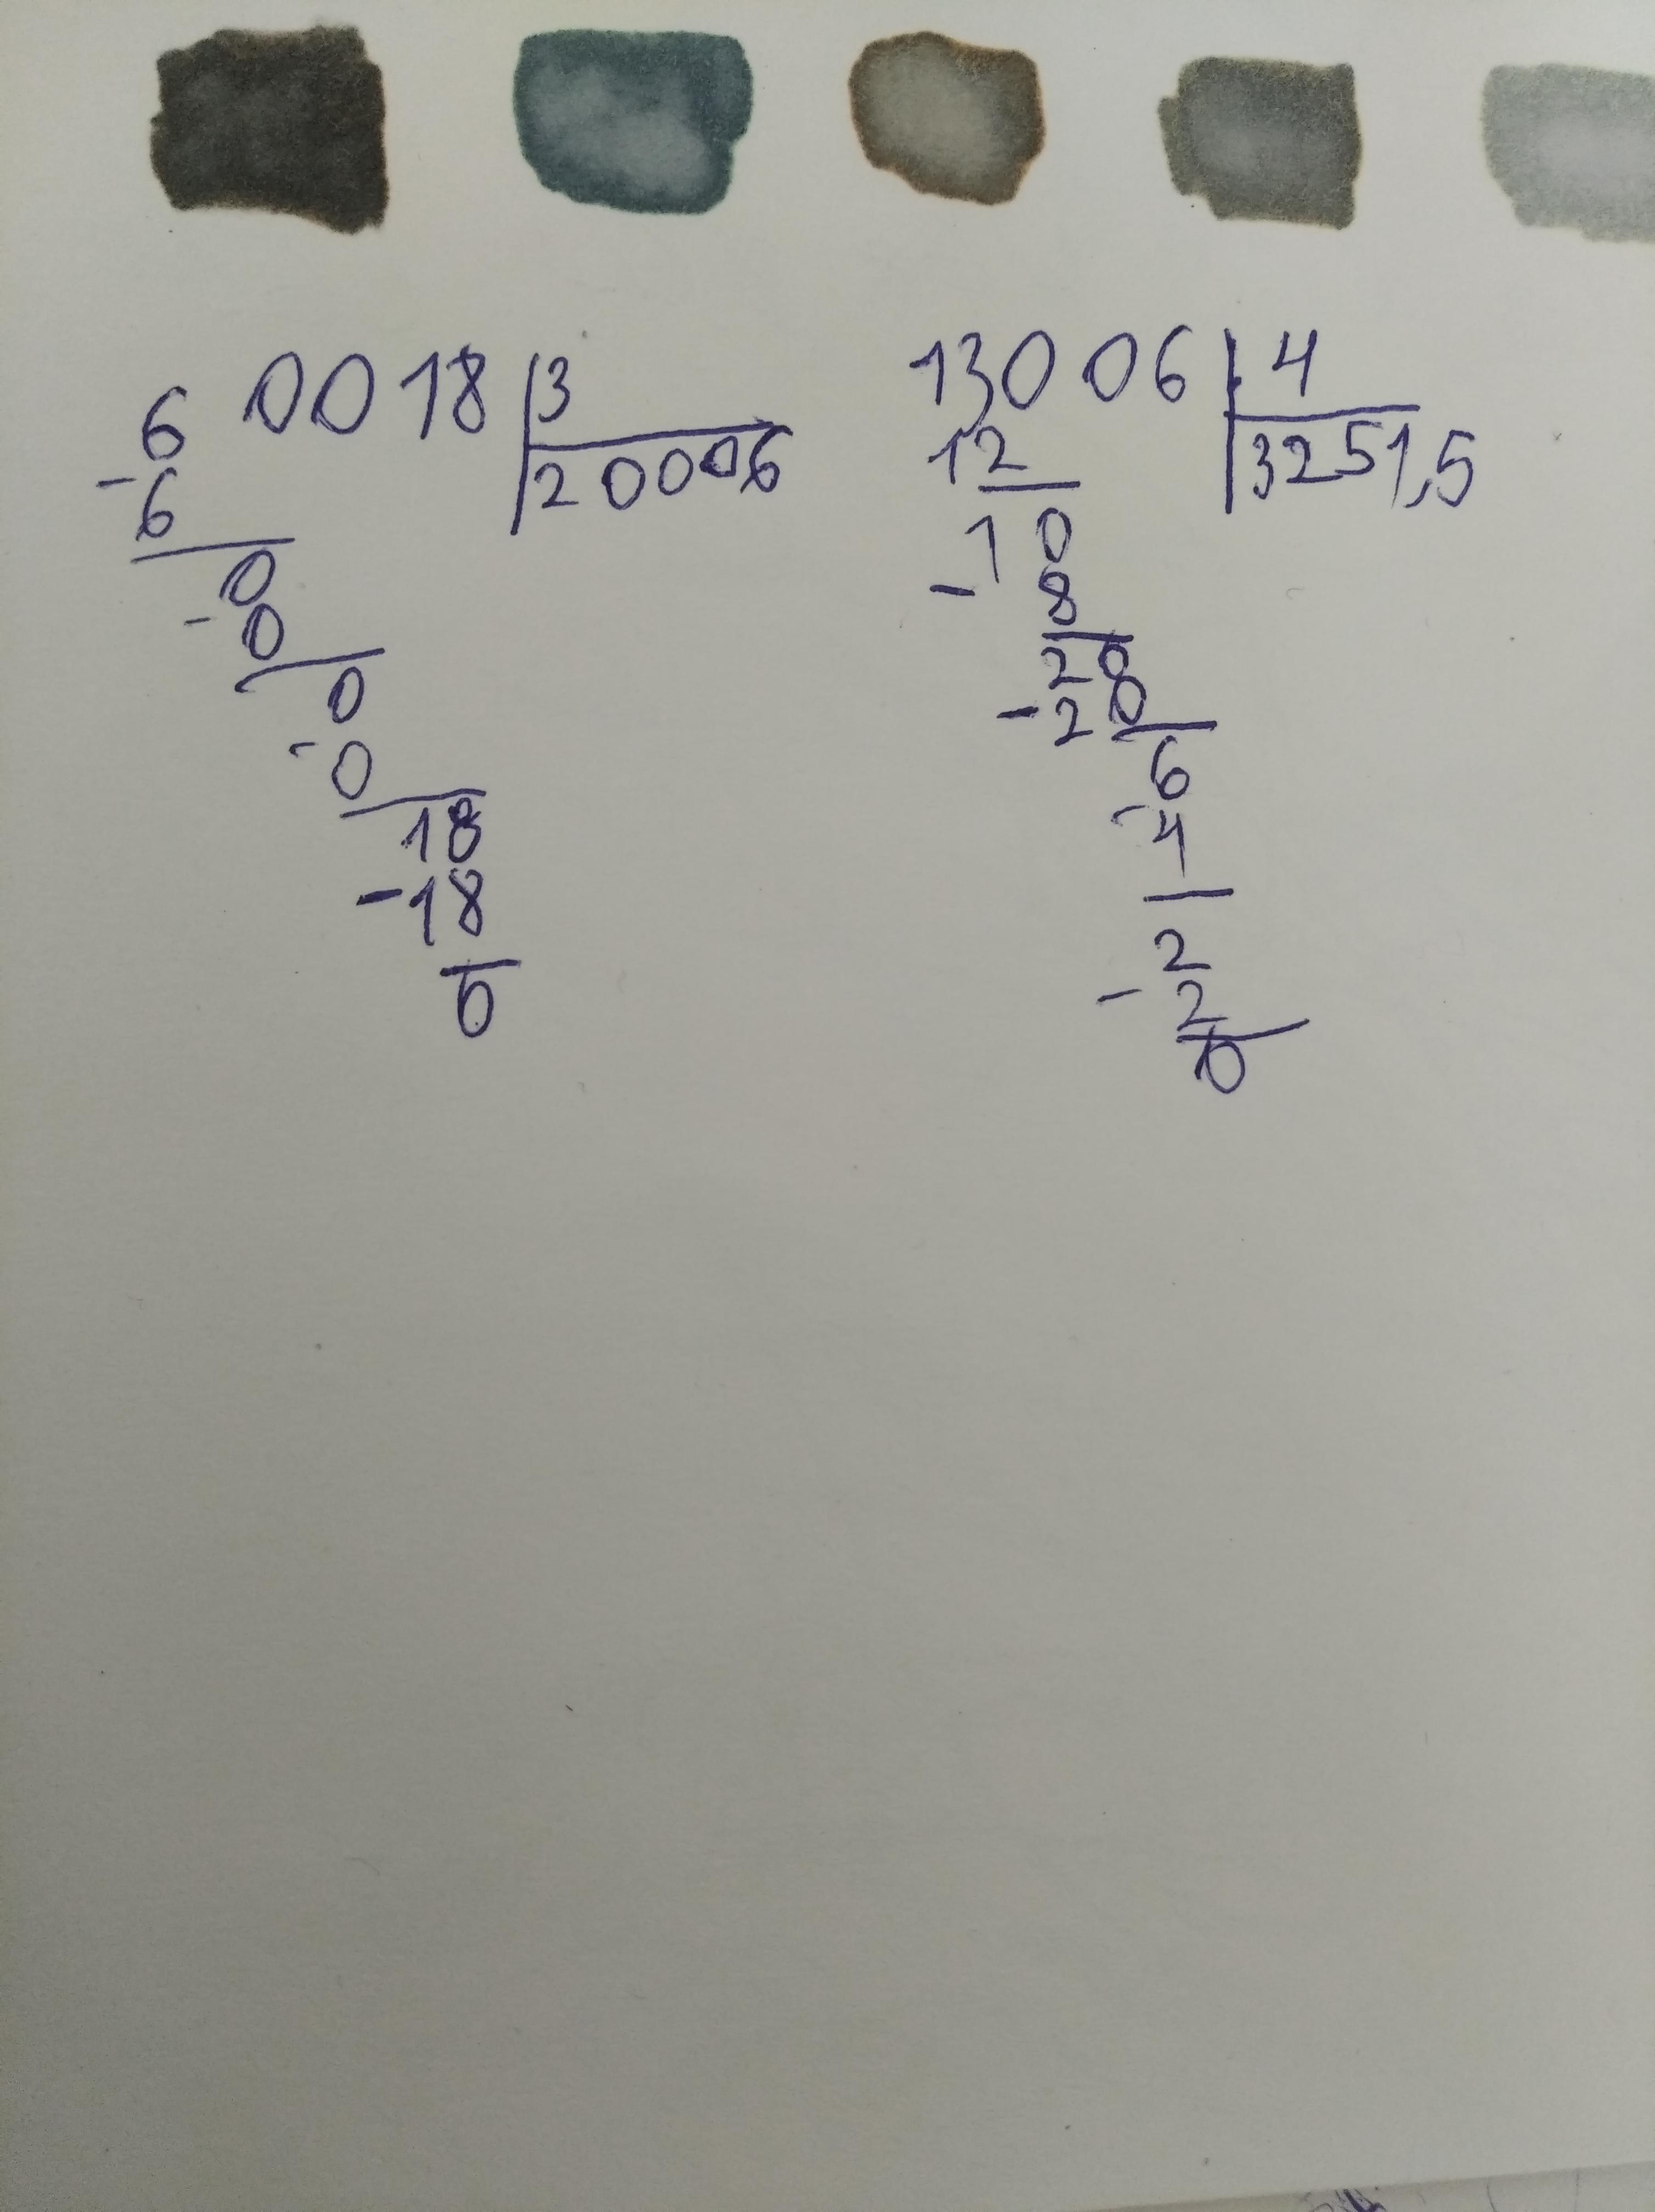 60018 3
- 6 20006
0
- 0
0
- 0
18
- 18
0
13006 4
12 3251,5
10
- 8
20
- 20
6
- 4
2
- 2
0